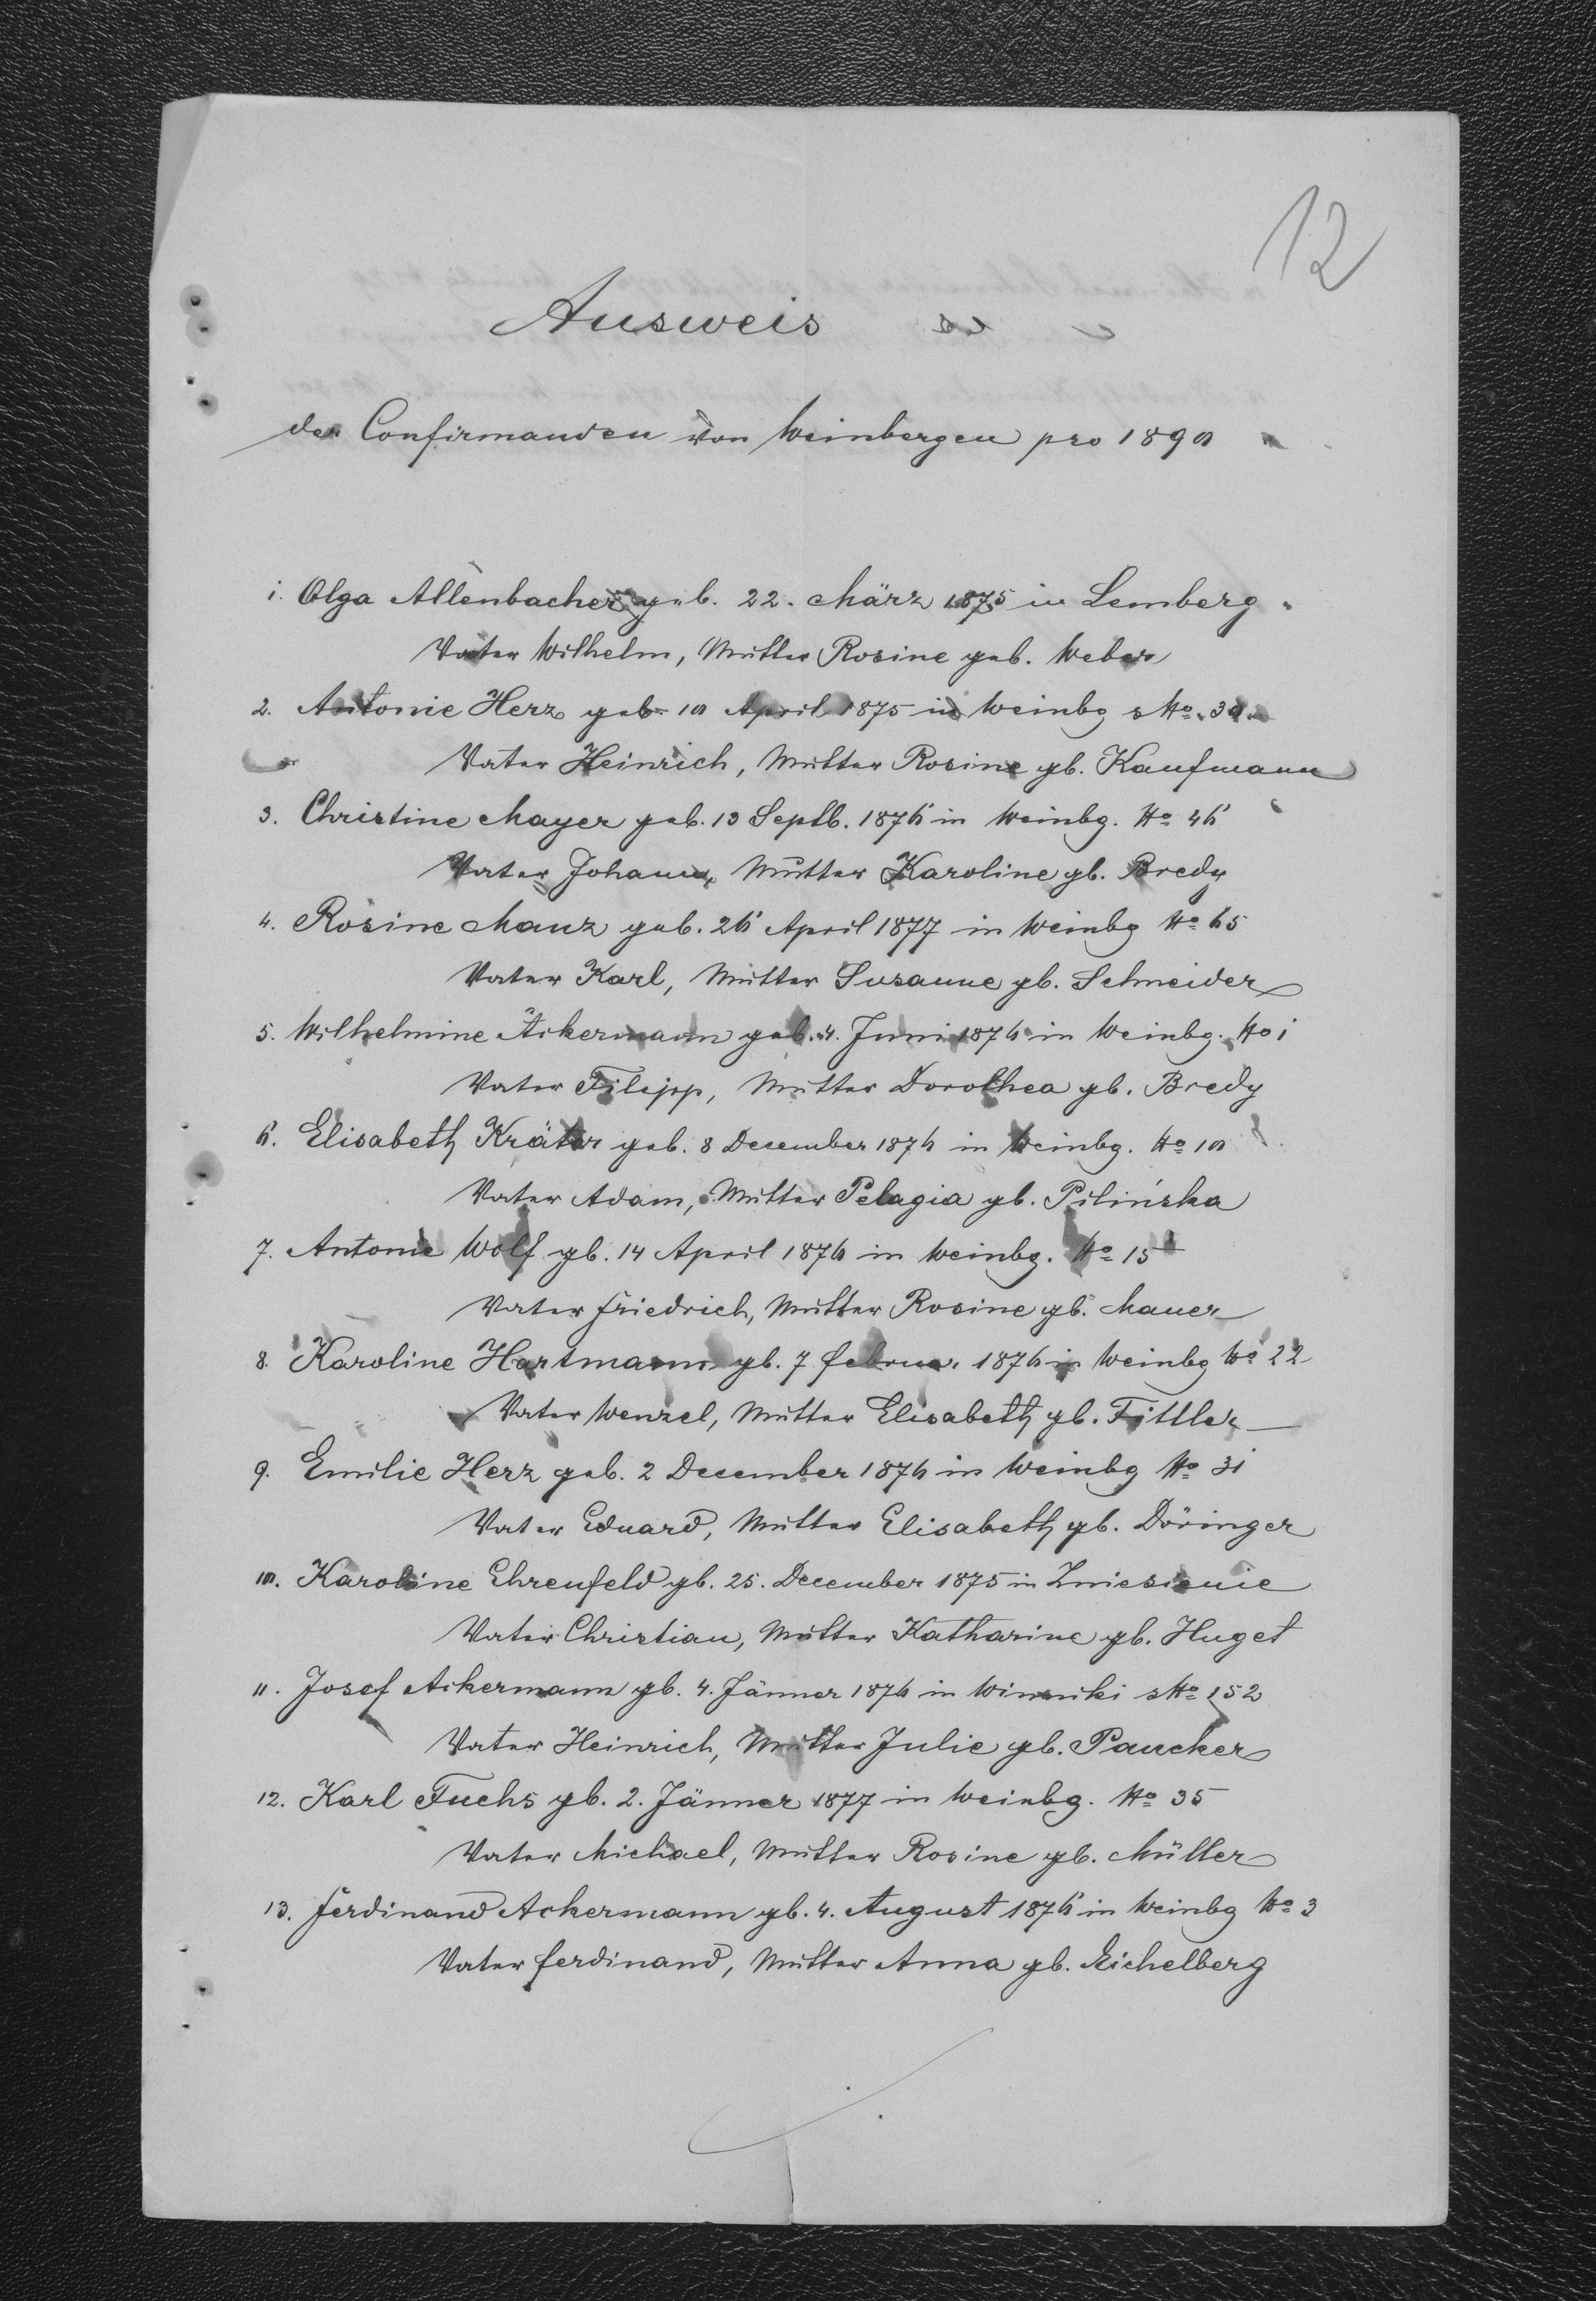 12
Ausweis
der Confirmanden von Weinbergen pro 1890
1. Olga Allenbacher geb. 22. März 1875 in Lemberg
Vater Wilhelm, Mutter Rosine geb. Weber
2. Antonie Herz geb. 10 April 1875 in Weinbg No. 30
Vater Heinrich, Mutter Rosine gb. Kaufmann
3. Christine Mayer geb. 13 Septb. 1876 in Weinbg. No 46
Vater Johann, Mutter Karoline gb. Bredy
4. Rosine Manz geb. 26 April 1877 in Weinbg No 65
Vater Karl, Mutter Susanne gb. Schneider
5. Wilhelmine Ackermann geb. 4. Juni 1876 in Weinbg. No 1
Vater Filipp, Mutter Dorothea gb. Bredy
6. Elisabeth Kräter geb. 8 December 1876 in Weinbg. No 10
Vater Adam, Mutter Pelagia gb. Pilińska
7. Antonie Wolf gb. 14 April 1876 in Weinbg. No 15
Vater Friedrich, Mutter Rosine gb. Mauer
8. Karoline Hartmann gb. 7 Februar 1876 in Weinbg No 22
Vater Wenzel, Mutter Elisabeth gb. Tittler
9. Emilie Herz geb. 2 December 1876 in Weinbg No 31
Vater Eduard, Mutter Elisabeth gb. Döringer
10. Karoline Ehrenfeld gb. 25. December 1875 in Zniesienie
Vater Christian, Mutter Katharine gb. Huget
11. Josef Ackermann gb. 4. Jänner 1876 in Winniki No 152
Vater Heinrich, Mutter Julie gb. Paucker
12. Karl Fuchs gb. 2. Jänner 1877 in Weinbg. No 35
Vater Michael, Mutter Rosine gb. Müller
13. Ferdinand Ackermann gb. 4. August 1876 in Weinbg No 3
Vater Ferdinand, Mutter Anna gb. Eichelberg